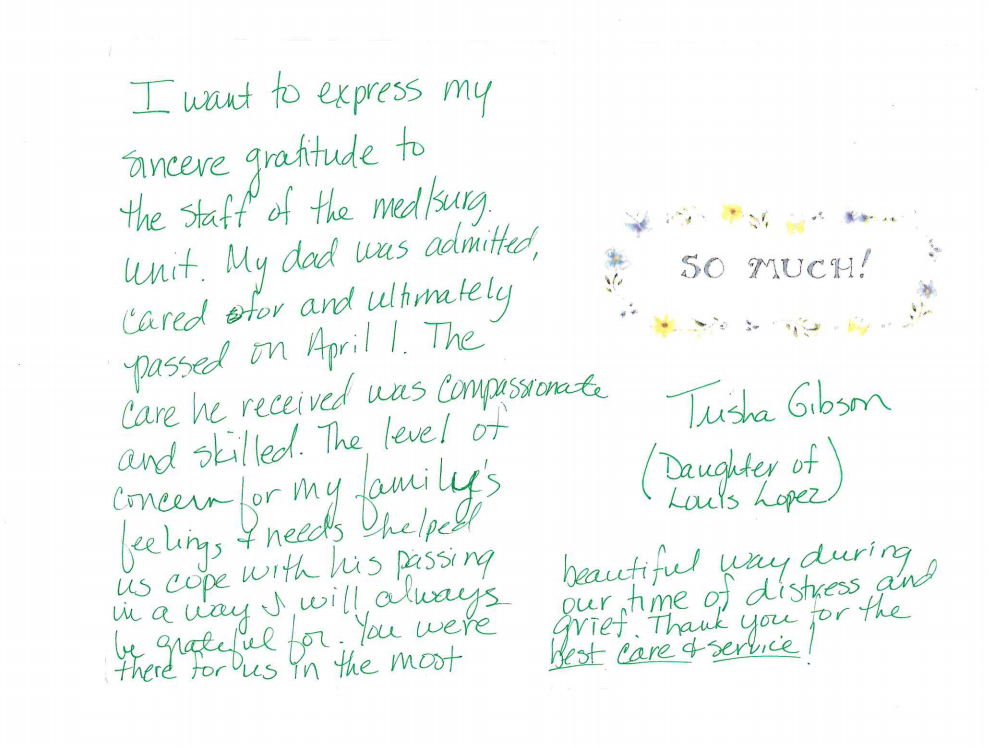 I want to express my
sincere gratitude to
the staff of the med/surg.
unit. My dad was admitted,
cared for and ultimately
passed on April 1. The
care he received was compassionate
and skilled. The level of
concern for my family's
feelings + needs helped
us cope with his passing
in a way I will always
be grateful for. You were
there for us in the most
SO MUCH!
Trisha Gibson
(Daughter of
Louis Lopez)
beautiful way during
our time of distress and
grief. Thank you for the
best care & service!